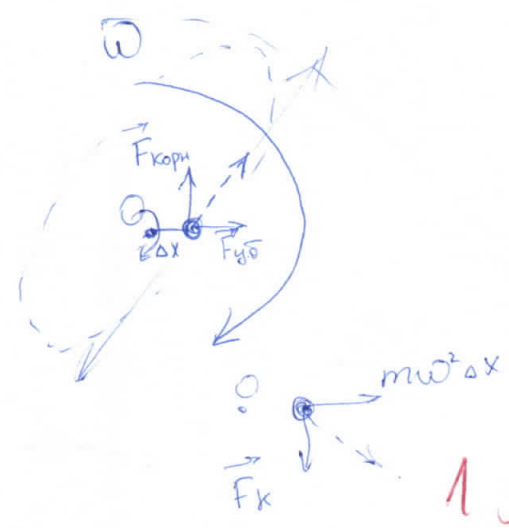 ω
F⃗корн
O
Δx
F⃗уб
O
mω²Δx
F⃗к
1